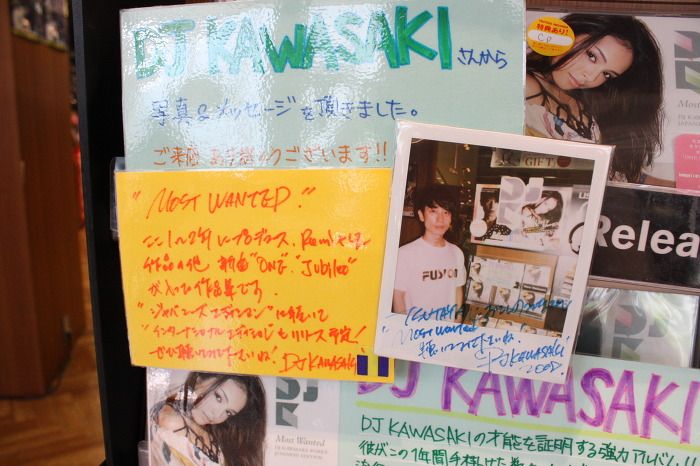 DJ KAWASAKI さんから
写真&メッセージを頂きました。
ご来店ありがとうございます!!
"MOST WANTED"
ここ1〜2年にプロデュース、Remixした
作品の他 新曲"ONE" "Jubilee"
が入った作品集です。
"ジャパニーズエディション"に続いて
"インターナショナルエディション"もリリース予定!
ぜひ聴いてみて下さいね! DJ KAWASAKI
GIFT
FUSION
Most Wanted
DJ KAWASAKI
2008.
特典あり!
CD
Most
DJ KAWA
JAPANE
Relea
DJ KAWASAKI
DJ KAWASAKIの才能を証明する強力アルバム
彼がこの1年間手掛けた
Most Wanted
DJ KAWASAKI WORKS
JAPANESE EDITION